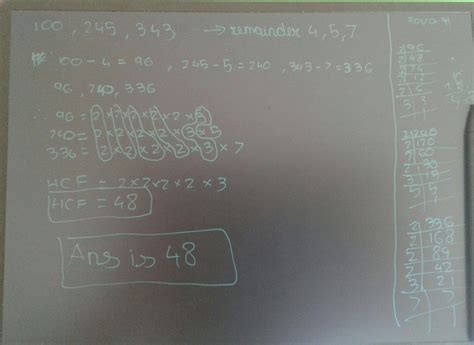 100 , 245 , 343 → remainder 4, 5, 7
100 - 4 = 96 , 245 - 5 = 240 , 343 - 7 = 336
96, 240, 336
96 = 2 × 2 × 2 × 2 × 2 × 3
240 = 2 × 2 × 2 × 2 × 3 × 5
336 = 2 × 2 × 2 × 2 × 3 × 7
HCF = 2 × 2 × 2 × 2 × 3
HCF = 48
Ans is 48
2 96
2 48
2 24
2 12
2 6
3 3
2 240
2 120
2 60
2 30
3 15
5 5
2 336
2 168
2 84
2 42
3 21
7 7